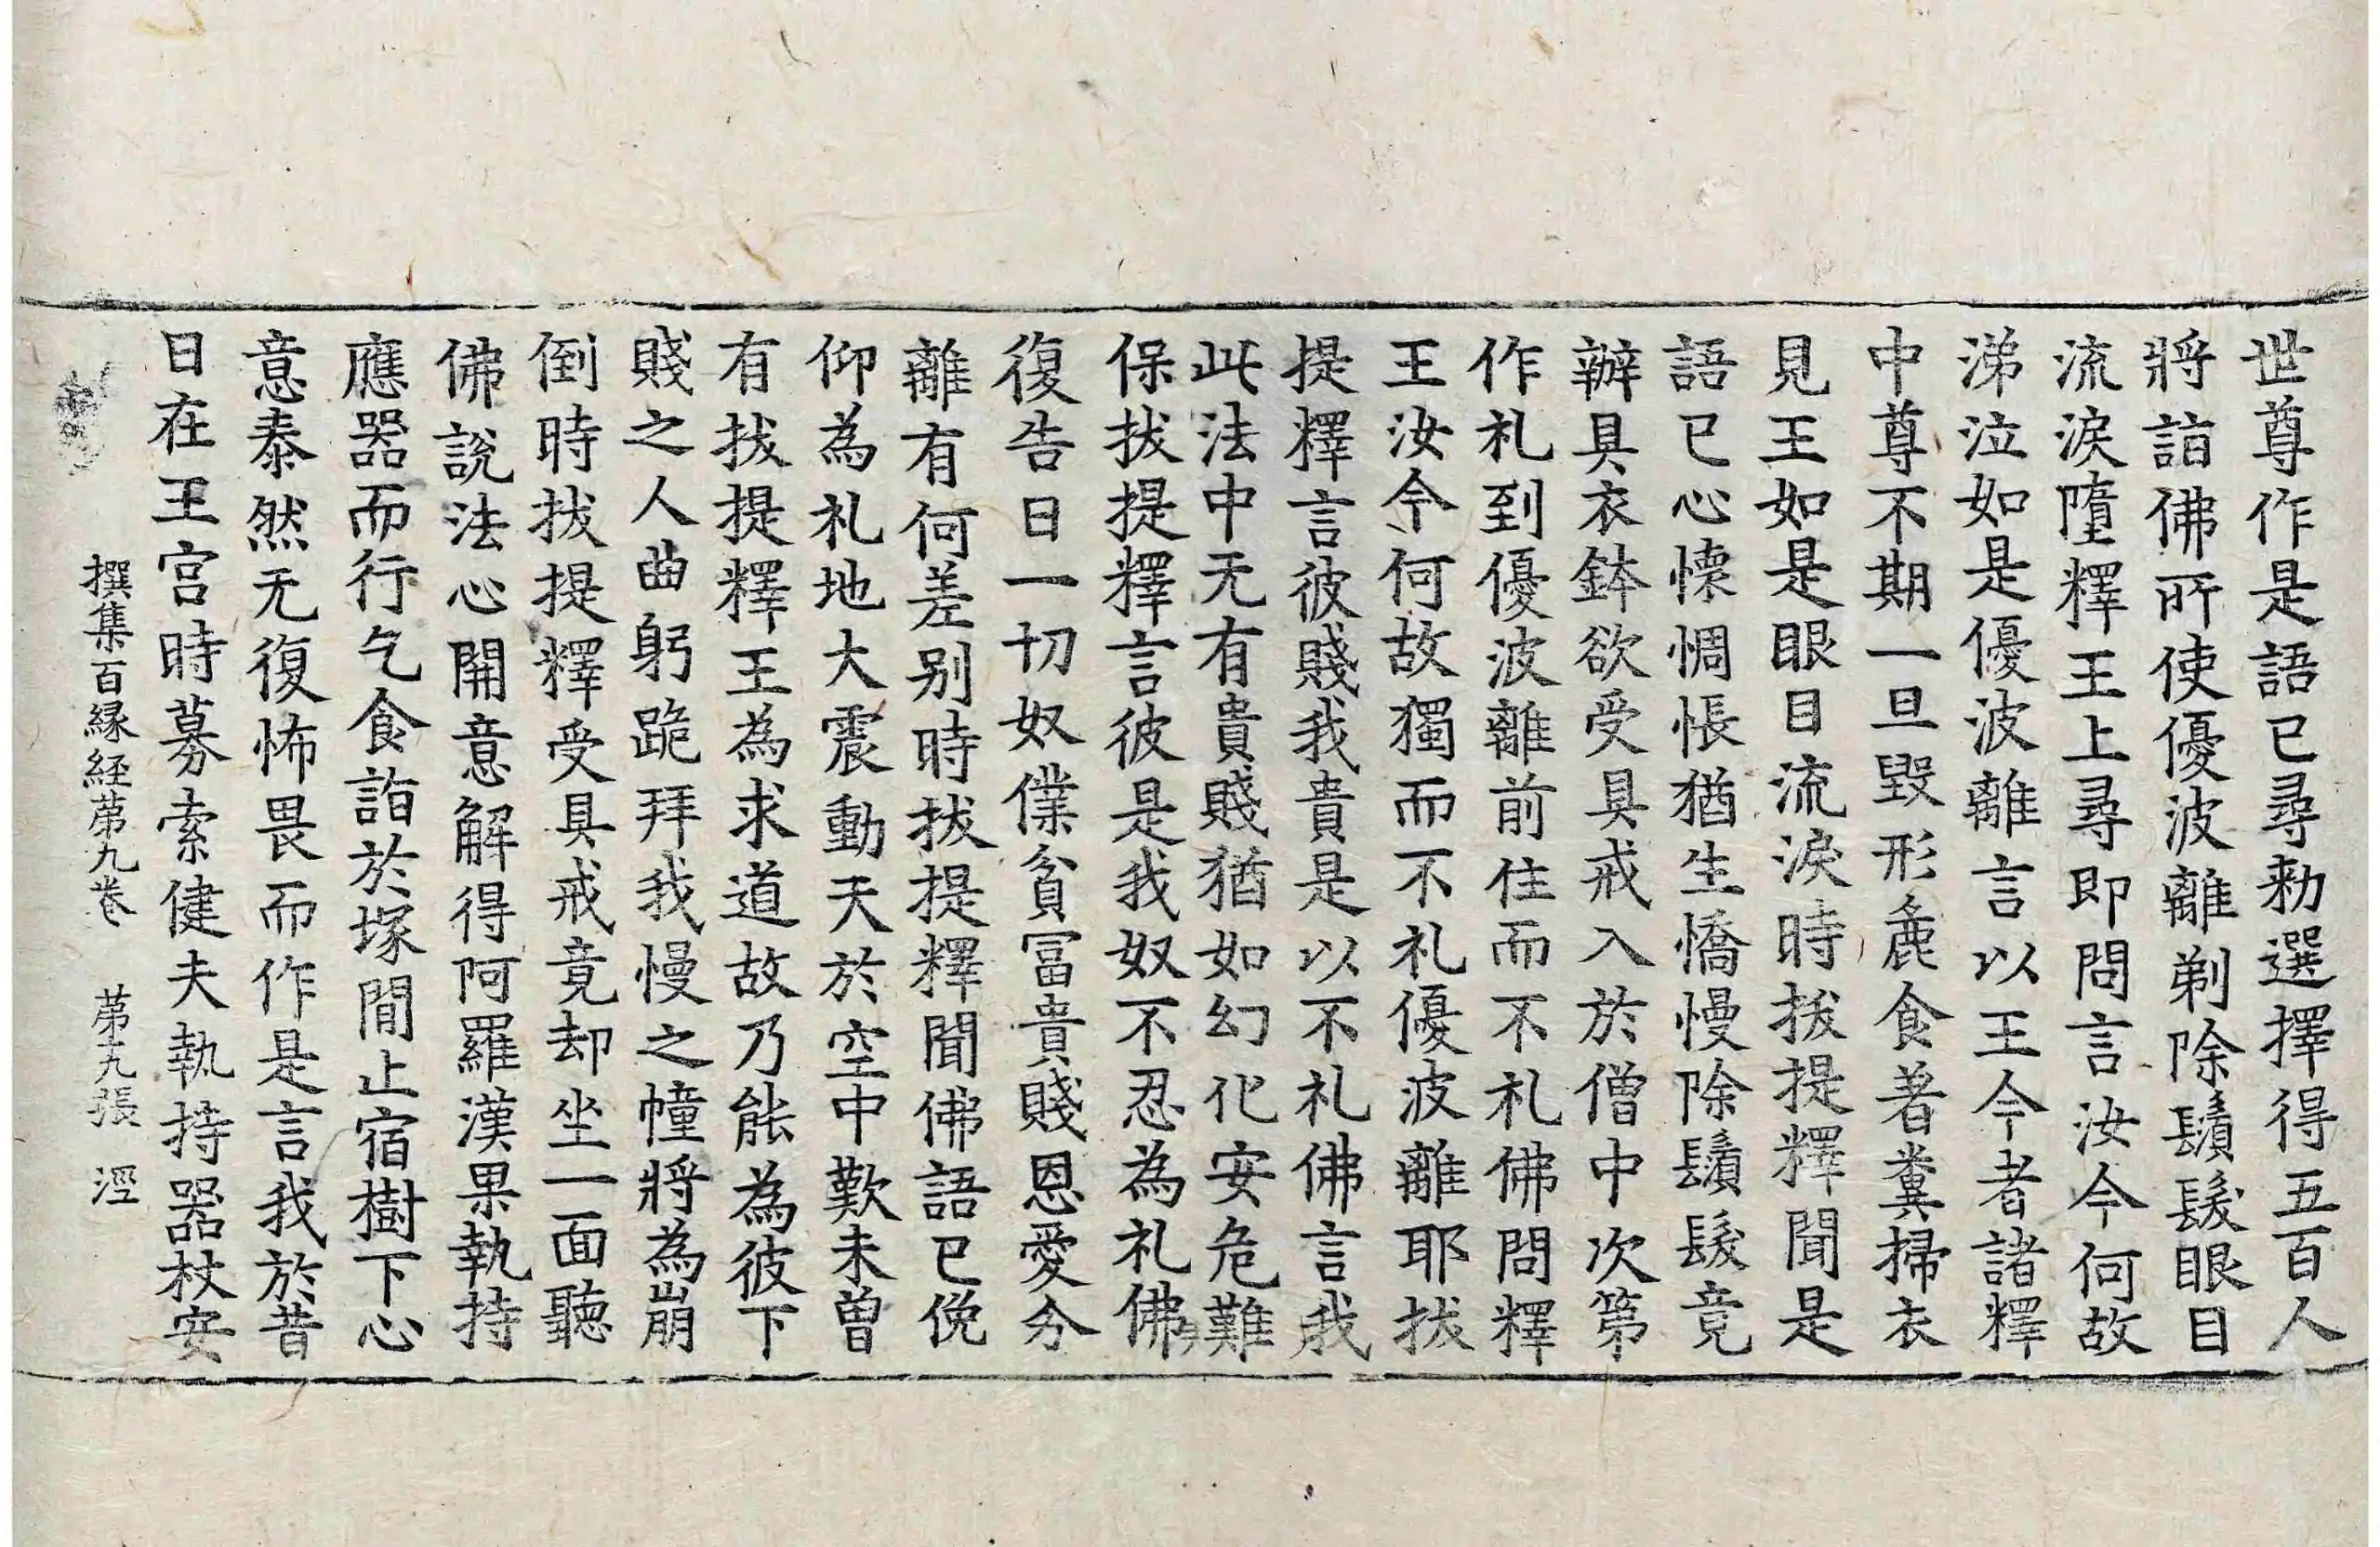 世尊作是語已尋勑選擇得五百人
將詣佛所使優波離剃除鬚髮眼目
流淚墮釋王上尋即問言汝今何故
涕泣如是優波離言以王今者諸釋
中尊不期一旦毀形麁食著糞掃衣
見王如是眼目流淚時拔提釋聞是
語已心懷惆悵猶生憍慢除鬚髮竟
辦具衣鉢欲受具戒入於僧中次第
作礼到優波離前住而不礼佛問釋
王汝今何故獨而不礼優波離耶拔
提釋言彼賤我貴是以不礼佛言我
此法中无有貴賤猶如幻化安危難
保拔提釋言彼是我奴不忍為礼佛
復告曰一切奴僕貧冨貴賤恩愛分
離有何差别時拔提釋聞佛語已俛
仰為礼地大震動天於空中歎未曾
有拔提釋王為求道故乃能為彼下
賤之人曲躬跪拜我慢之幢將為崩
倒時拔提釋受具戒竟却坐一面聽
佛說法心開意解得阿羅漢果執持
應器而行乞食詣於塚間止宿樹下心
意泰然无復怖畏而作是言我於昔
日在王宮時募索健夫執持器杖安
撰集百縁経苐九卷 苐九張 涇